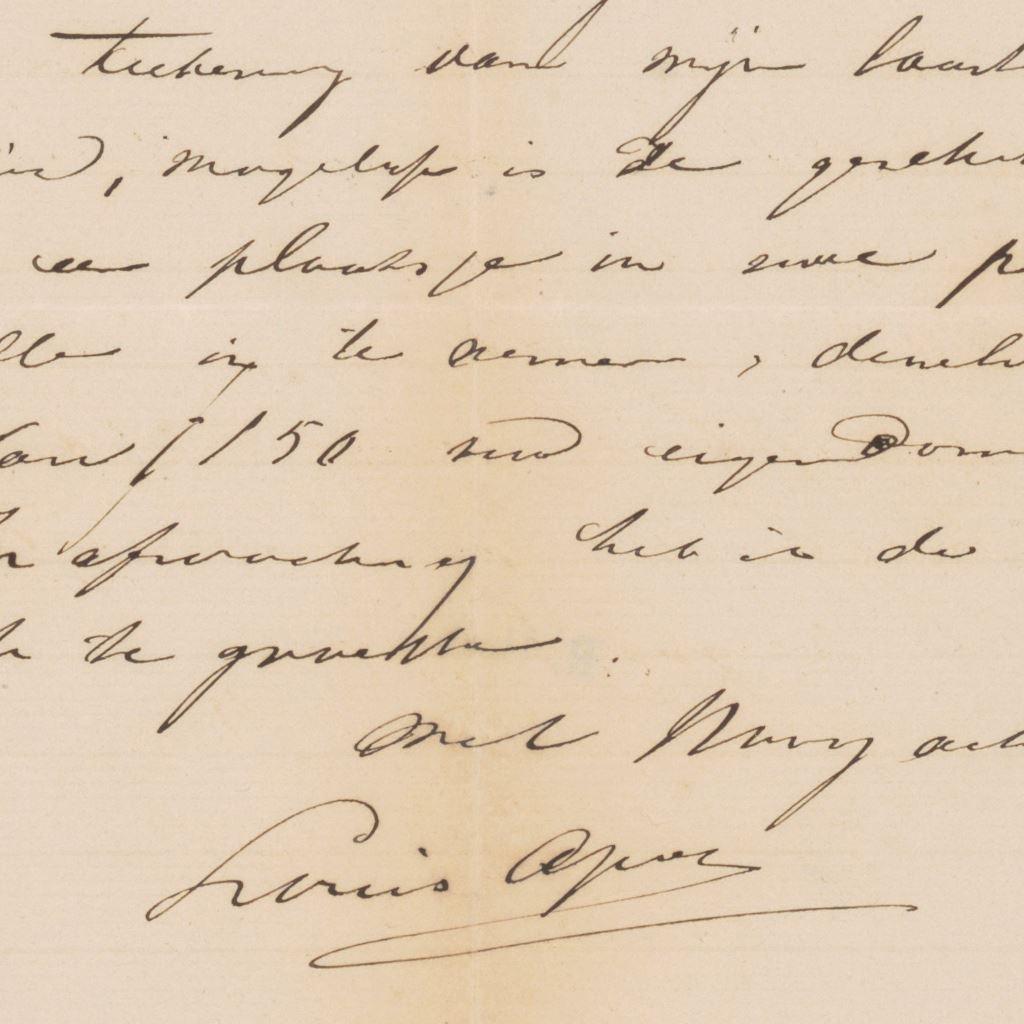 teekening van mijn laatst
, mogelijk is de geschikt
een plaatsje in uwe p
in te nemen, denzelv
van f 150 met eigendom
afwachting heb ik de
te groeten.
Met Hoog ach
Louis Apol